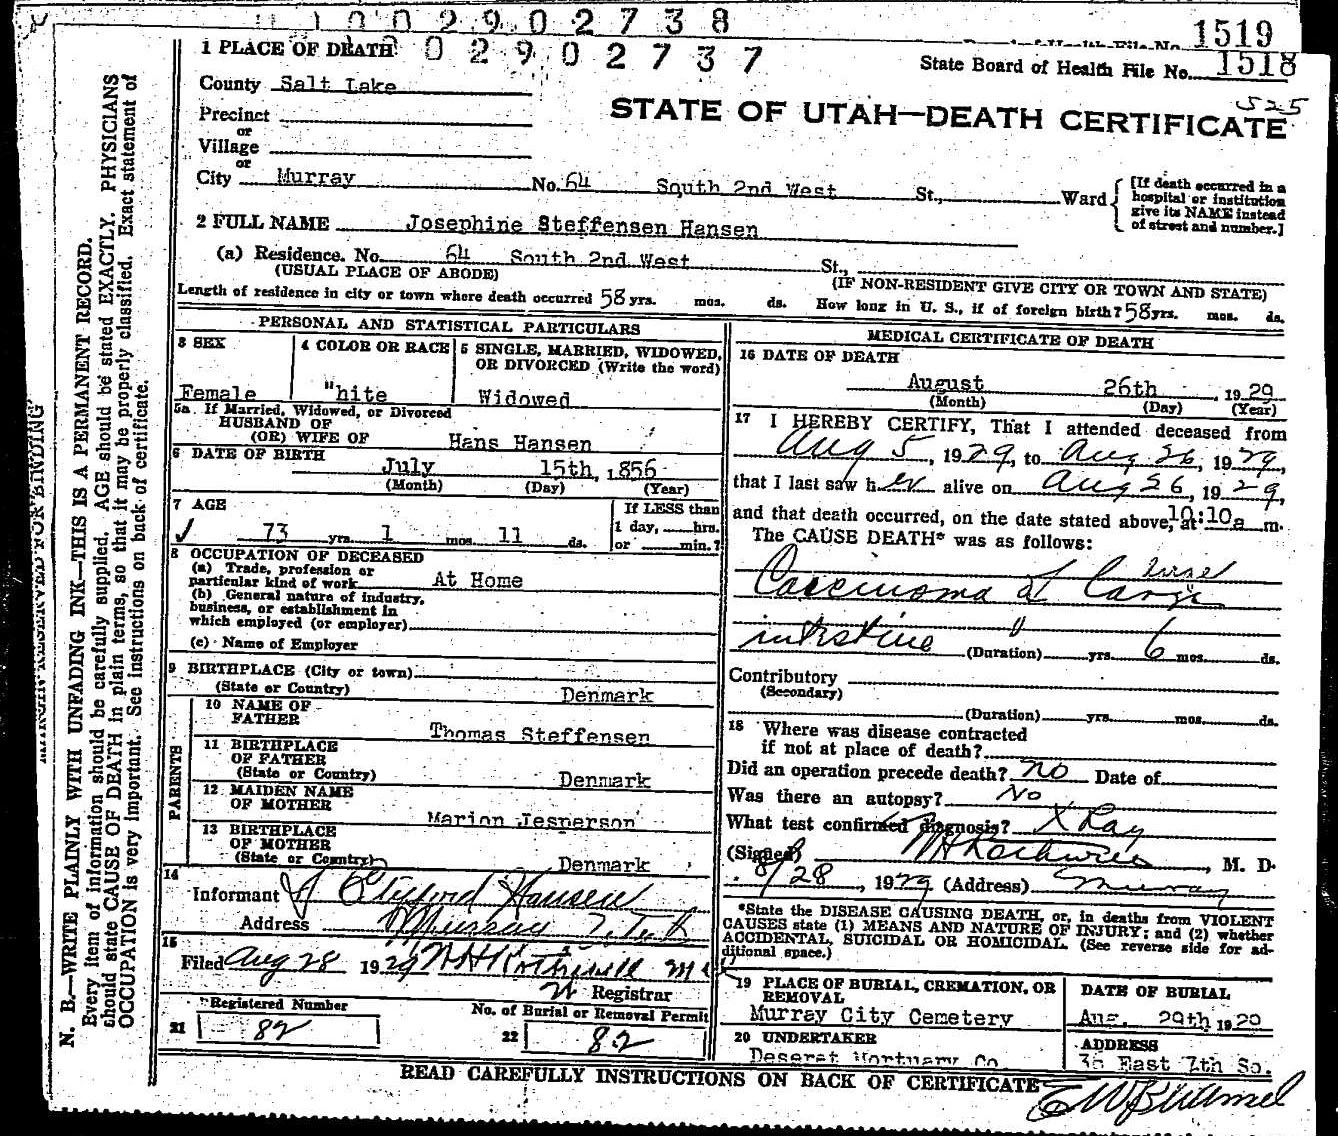 1002902738
1519
002902737
1 PLACE OF DEATH
State Board of Health File No. 1518
County Salt Lake
525
STATE OF UTAH—DEATH CERTIFICATE
Precinct
or
Village
or
City Murray No. 64 South 2nd West St., Ward
[If death occurred in a hospital or institution give its NAME instead of street and number.]
2 FULL NAME Josephine Steffensen Hansen
(a) Residence. No. 64 South 2nd West St.,
(USUAL PLACE OF ABODE) (IF NON-RESIDENT GIVE CITY OR TOWN AND STATE)
Length of residence in city or town where death occurred 58 yrs. mos. ds. How long in U. S., if of foreign birth? 58 yrs. mos. ds.
PERSONAL AND STATISTICAL PARTICULARS
3 SEX
Female
4 COLOR OR RACE
"hite
5 SINGLE, MARRIED, WIDOWED,
OR DIVORCED (Write the word)
Widowed
5a If Married, Widowed, or Divorced
HUSBAND OF
(OR) WIFE OF Hans Hansen
6 DATE OF BIRTH
July 15th, 1856
(Month) (Day) (Year)
7 AGE
73 yrs. 1 mos. 11 ds.
If LESS than
1 day, hrs.
or min.?
8 OCCUPATION OF DECEASED
(a) Trade, profession or
particular kind of work At Home
(b) General nature of industry,
business, or establishment in
which employed (or employer)
(c) Name of Employer
9 BIRTHPLACE (City or town)
(State or Country) Denmark
PARENTS
10 NAME OF
FATHER Thomas Steffensen
11 BIRTHPLACE
OF FATHER
(State or Country) Denmark
12 MAIDEN NAME
OF MOTHER Marion Jesperson
13 BIRTHPLACE
OF MOTHER
(State or Country) Denmark
14
Informant J Clifford Hansen
Address Murray Utah
15
Filed Aug 28 1929
Registrar
Registered Number
21 82
No. of Burial or Removal Permit
22 82
MEDICAL CERTIFICATE OF DEATH
16 DATE OF DEATH
August 26th, 1929
(Month) (Day) (Year)
17 I HEREBY CERTIFY, That I attended deceased from
Aug 5, 1929, to Aug 26, 1929,
that I last saw her alive on Aug 26, 1929,
and that death occurred, on the date stated above, at 10:10a m.
The CAUSE DEATH* was as follows:
Carcinoma of Large
intestine (Duration) yrs. 6 mos. ds.
Contributory
(Secondary)
(Duration) yrs. mos. ds.
18 Where was disease contracted
if not at place of death?
Did an operation precede death? No Date of
Was there an autopsy? No
What test confirmed diagnosis? X Ray
(Signed) , M. D.
8/28, 1929 (Address) Murray
*State the DISEASE CAUSING DEATH, or, in deaths from VIOLENT
CAUSES state (1) MEANS AND NATURE OF INJURY; and (2) whether
ACCIDENTAL, SUICIDAL OR HOMICIDAL. (See reverse side for ad-
ditional space.)
19 PLACE OF BURIAL, CREMATION, OR
REMOVAL
Murray City Cemetery
DATE OF BURIAL
Aug. 29th 1929
20 UNDERTAKER
Deseret Mortuary Co.
ADDRESS
36 East 7th So.
READ CAREFULLY INSTRUCTIONS ON BACK OF CERTIFICATE
MARGIN RESERVED FOR BINDING
N. B.—WRITE PLAINLY WITH UNFADING INK—THIS IS A PERMANENT RECORD.
Every item of information should be carefully supplied. AGE should be stated EXACTLY. PHYSICIANS
should state CAUSE OF DEATH in plain terms, so that it may be properly classified. Exact statement of
OCCUPATION is very important. See instructions on back of certificate.